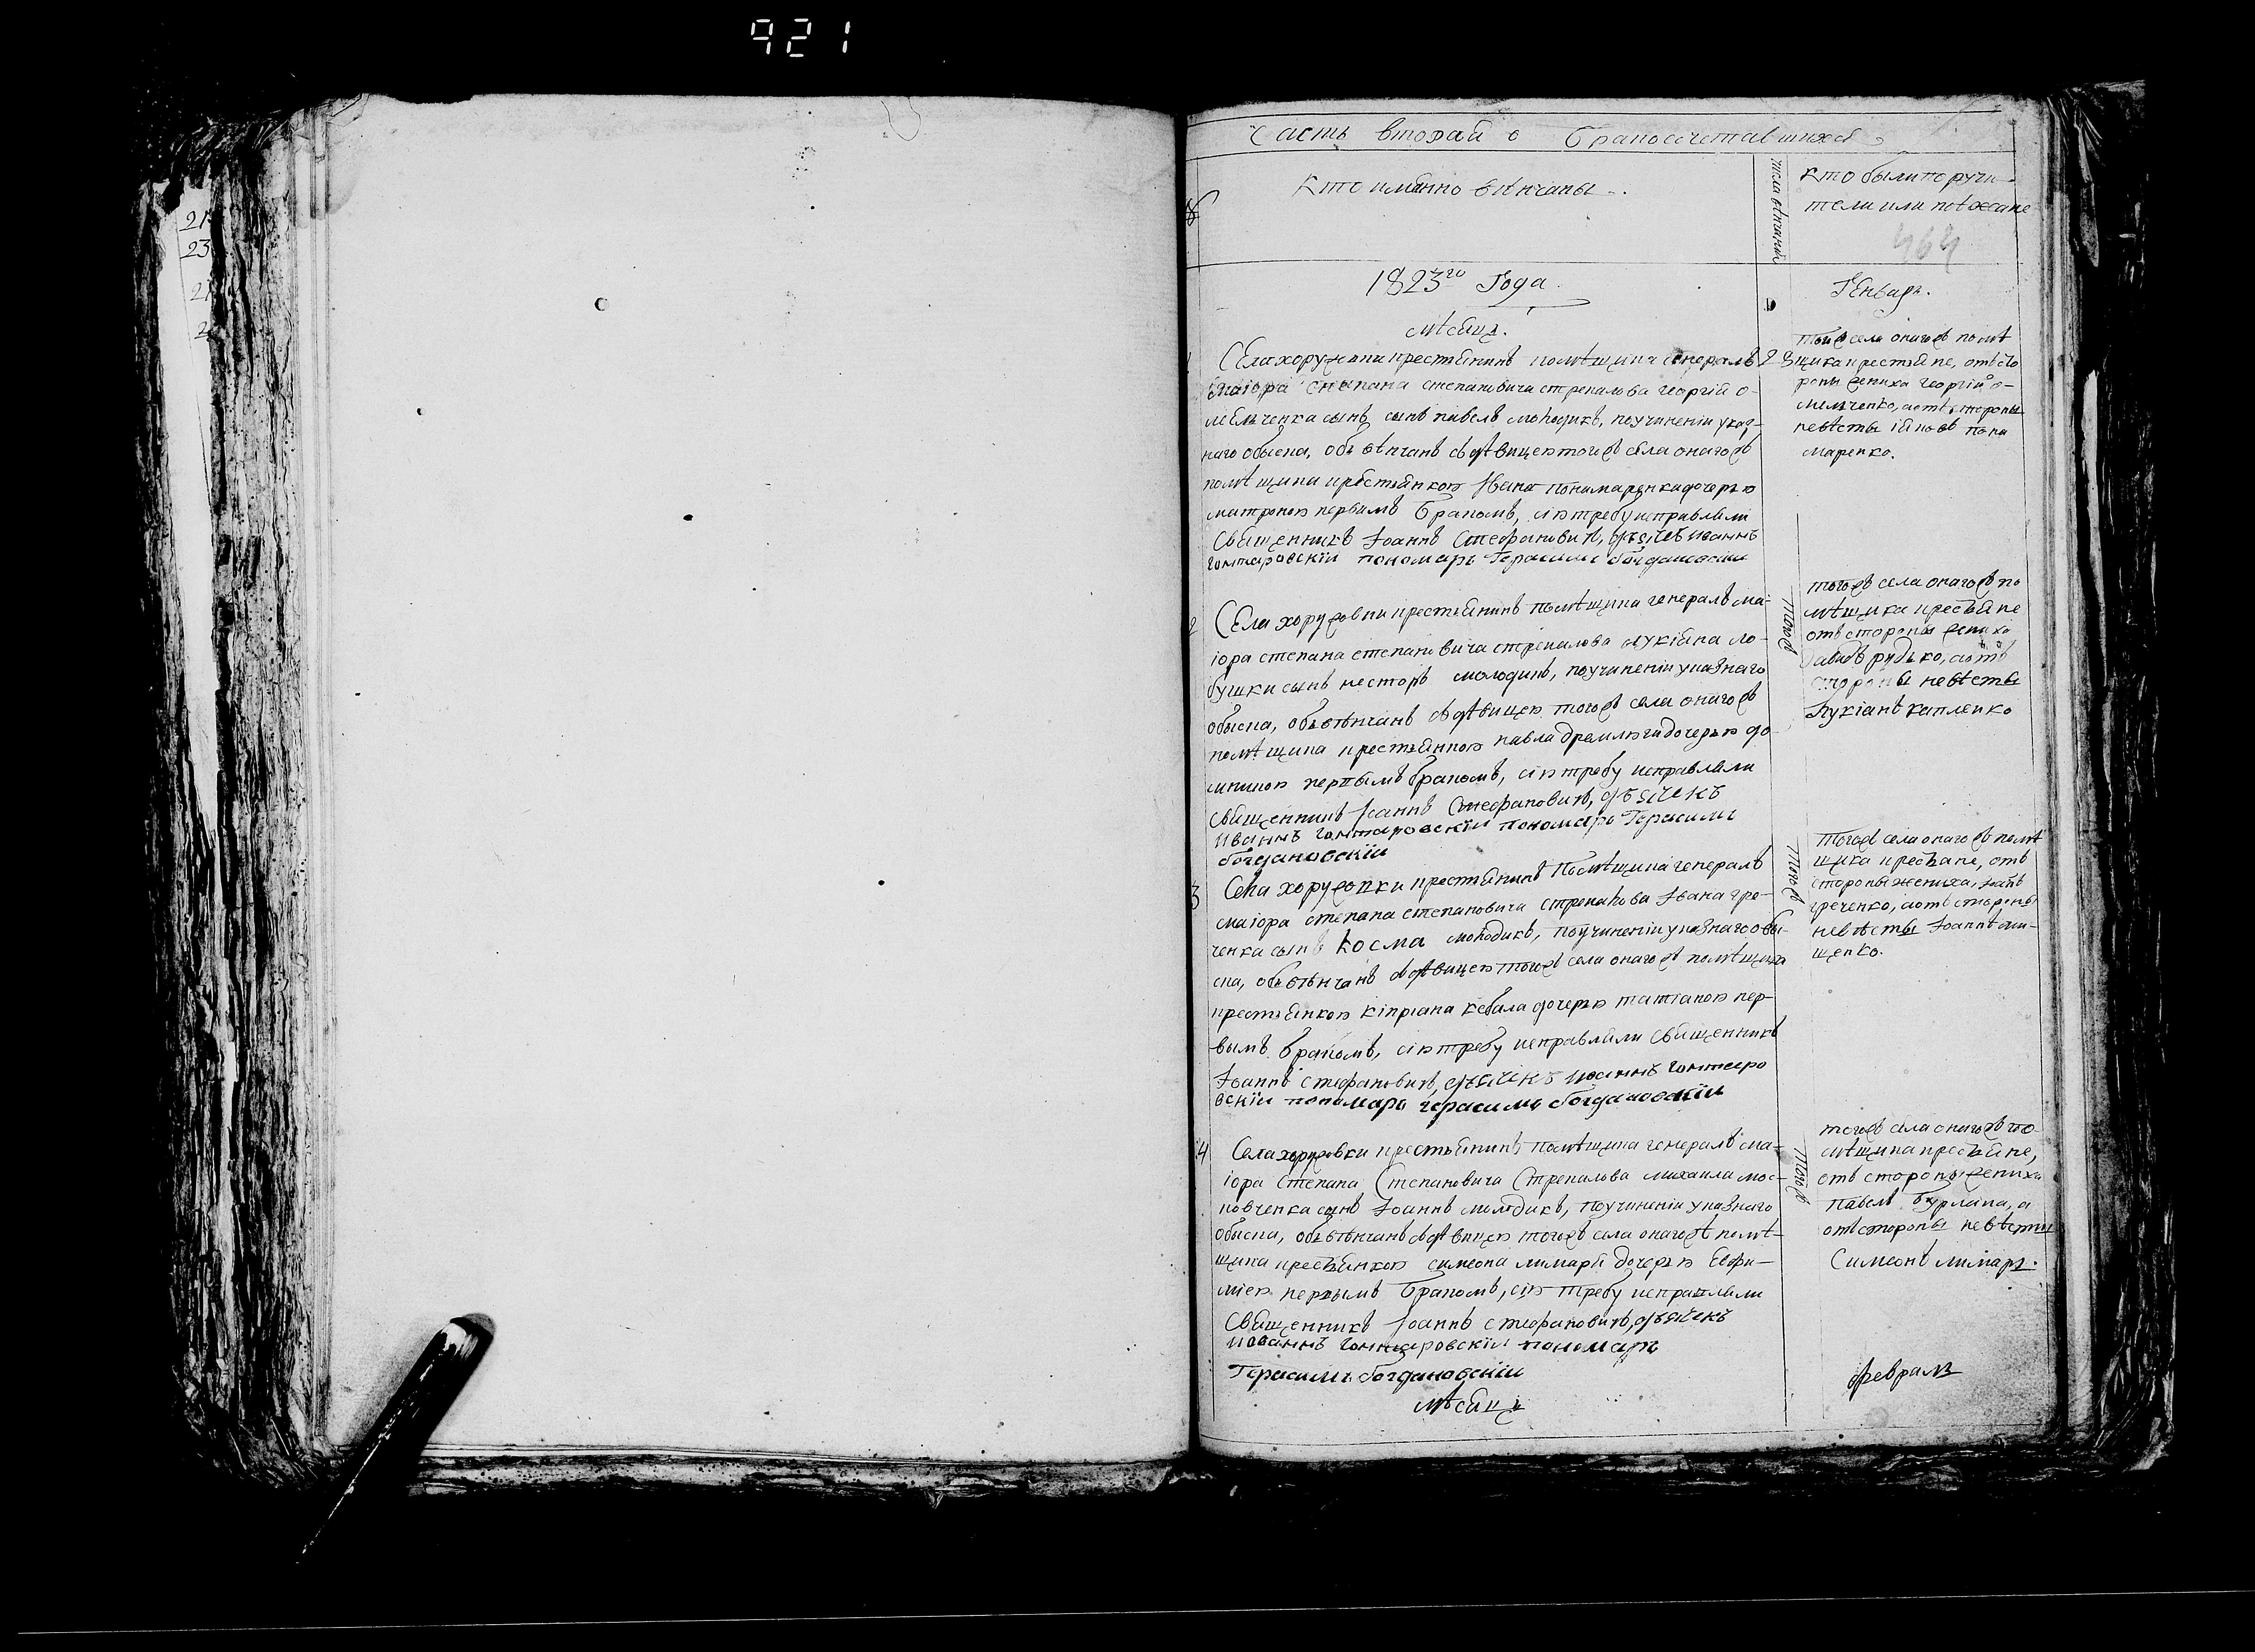 921
21
23
21
2
Часть вторая о бракосочетавшихся
№
Кто имянно венчаны
числа венчаний
кто были поручи-
тели или поѣзжане
464
1823го Года.
Генварь.
мѣсяцъ.
1
Села хоружовки крестьянинъ помѣщика генералъ
маіора степана степановича стрекалова георгій о-
мельченка сынъ павелъ молодикъ, поучиненіи указ-
наго обыска, обвѣнчанъ здѣвицею тогожъ села онагожъ
помѣщика крестьянкою Ивана пономаренка дочерью
матроною первымъ бракомъ, сію требу исправляли
Священникъ Іоаннъ Стефановичъ, дьячекъ Иваннъ
гонтаровскіи пономарь Герасимъ богдановскіи
23
того села онагожъ помѣ
щика крестьяне, отъ сто
роны жениха георгій о-
мельченко, аотъ стороны
невѣсты
по
маренко.
2
Села хоружовки крестьянинъ помѣщика генералъ ма-
іора степана степановича стрекалова лукіяна ло-
бушки сынъ несторъ молодикъ, поучиненіи указнаго
обыска, обвѣнчанъ здѣвицею тогожъ села онагожъ
помѣщика крестьянкою павла дремлюги дочерью до-
мникою первымъ бракомъ, сію требу исправляли
священникъ Іоаннъ Стефановичъ, дьячекъ
Иваннъ гонтаровскіи пономарь Герасимъ
богдановскіи
тогожъ
тогожъ села онагожъ по
мѣщика крестьяне
отъ стороны жениха
рудько, аотъ
стороны невѣсты
Лукіанъ капленко
3
Села хоружовки крестьянинъ Помѣщика генералъ
маіора степана степановича стрекалова Іоана гре-
ченка сынъ косма молодикъ, поучиненіи указнаго обы-
ска, обвѣнчанъ здѣвицею тогожъ села онагожъ помѣщика
крестьянкою кипріана кебала дочерью татіаною пер-
вымъ бракомъ, сію требу исправляли Священникъ
Іоаннъ стефановичъ, дьячекъ Иваннъ гонтаро
вскіи пономарь герасимъ богдановскіи
тогожъ
Тогожъ села онагожъ помѣ
щика крестяне, отъ
стороны жениха,
греченко, аотъ стороны
невѣсты Іоаннъ ми-
щенко.
4
Села хоружовки крестьянинъ помѣщика генералъ ма-
іора Степана Степановича Стрекалова михаила мос-
ковченка сынъ Іоаннъ молодикъ, поучиненіи указнаго
обыска, обвѣнчанъ здѣвицею тогожъ села онагожъ помѣ-
щика крестьянкою симеона лимаря дочерью Евфи-
міею первымъ бракомъ, сію требу исправляли
Священникъ Іоаннъ стефановичъ, дьячекъ
Иваннъ гонтаровскіи пономарь
Герасимъ богдановскіи
тогожъ
тогожъ села онагожъ по-
мѣщика крестьяне,
отъ стороны жениха
павелъ бурлака, а
отъ стороны невѣсты
Симеонъ лимарь.
мѣсяцъ
февраль